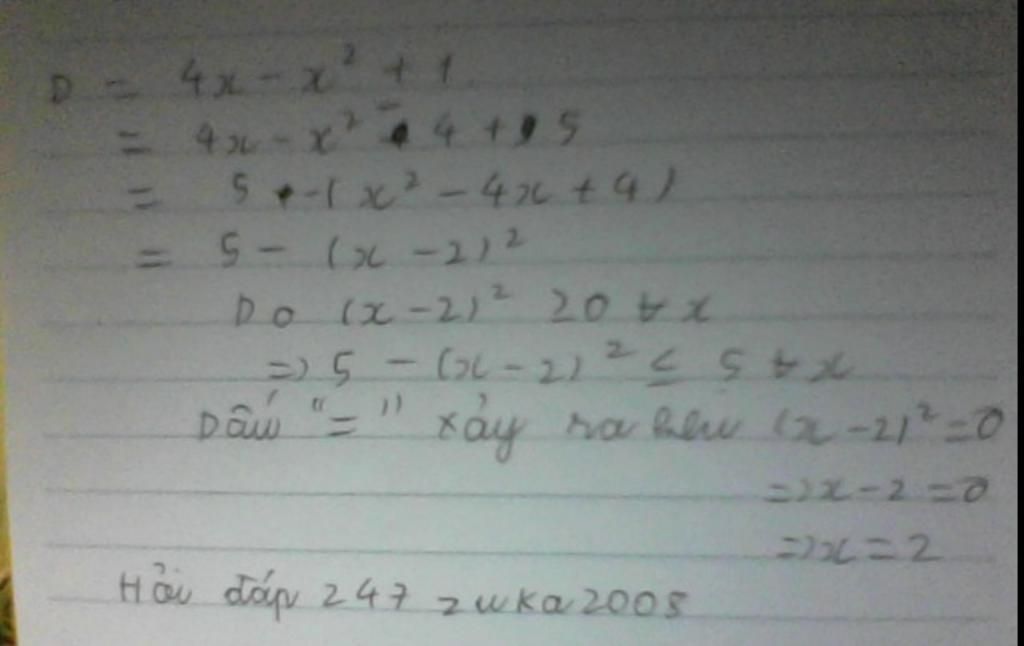 D = 4x - x² + 1
= 4x - x² - 4 + 5
= 5 - (x² - 4x + 4)
= 5 - (x - 2)²
Do (x - 2)² ≥ 0 ∀ x
=> 5 - (x - 2)² ≤ 5 ∀ x
Dấu "=" xảy ra khi (x - 2)² = 0
=> x - 2 = 0
=> x = 2
Hỏi đáp 247 zuka2008